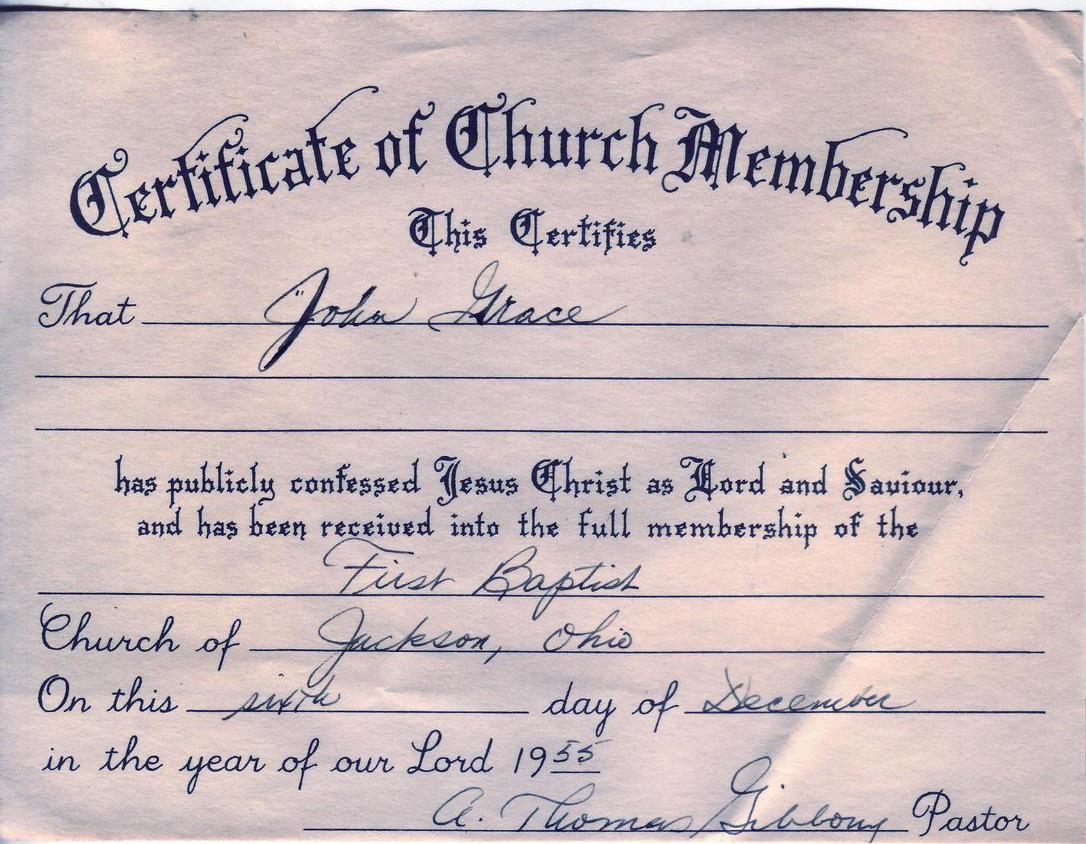 Certificate of Church Membership
This Certifies
That John Grace
has publicly confessed Jesus Christ as Lord and Saviour,
and has been received into the full membership of the
First Baptist
Church of Jackson, Ohio
On this sixth day of December
in the year of our Lord 1955
A. Thomas Gibbony Pastor